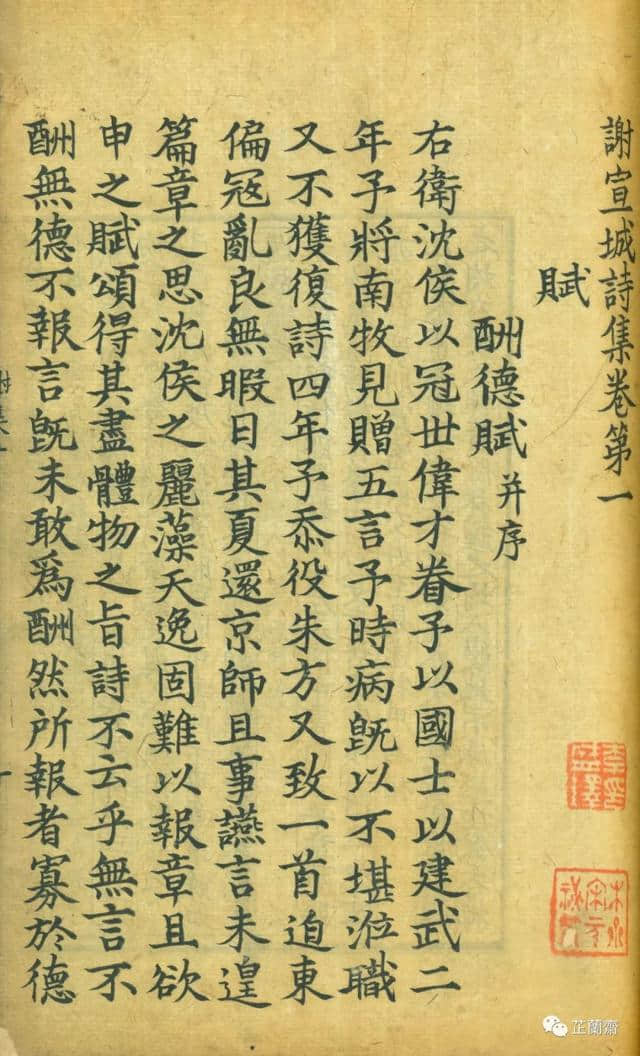 謝宣城詩集卷第一
賦
酬德賦 并序
右衛沈侯以冠世偉才眷予以國士以建武二
年予將南牧見贈五言予時病既以不堪涖職
又不獲復詩四年予忝役朱方又致一首迫東
偏寇亂良無暇日其夏還京師且事讌言未遑
篇章之思沈侯之麗藻天逸固難以報章且欲
申之賦頌得其盡體物之旨詩不云乎無言不
酬無德不報言既未敢為酬然所報者寡於德
芷蘭齋